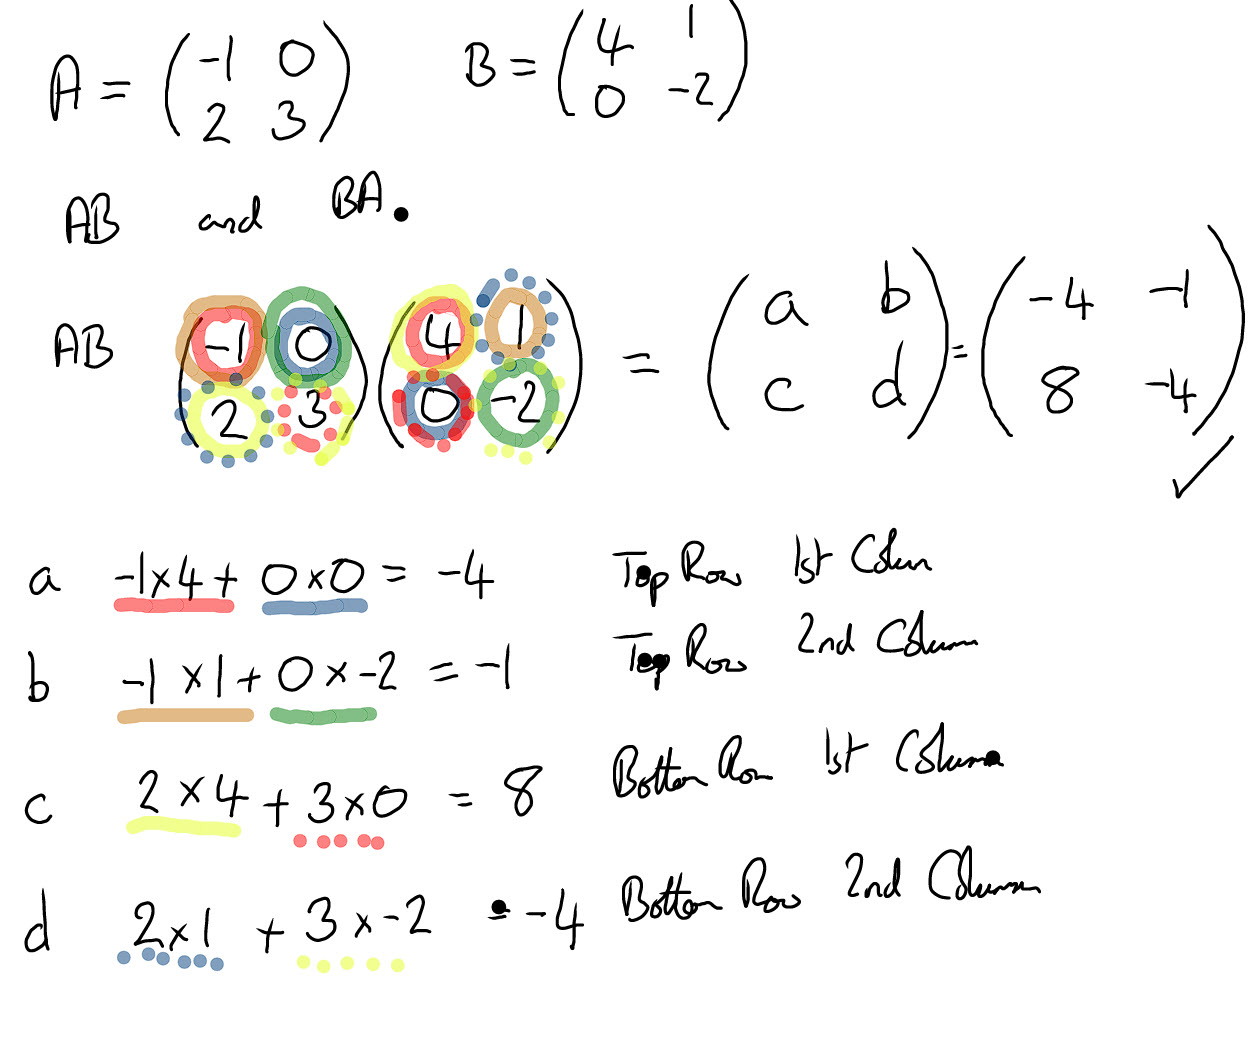 A = ( -1 0 ) B = ( 4 1 )
( 2 3 ) ( 0 -2 )
AB and BA.
AB ( -1 0 ) ( 4 1 ) = ( a b ) = ( -4 -1 )
( 2 3 ) ( 0 -2 ) ( c d ) ( 8 -4 ) ✓
a -1×4 + 0×0 = -4 Top Row 1st Colum
b -1×1 + 0×-2 = -1 Top Row 2nd Column
c 2×4 + 3×0 = 8 Bottom Row 1st Column
d 2×1 + 3×-2 = -4 Bottom Row 2nd Column